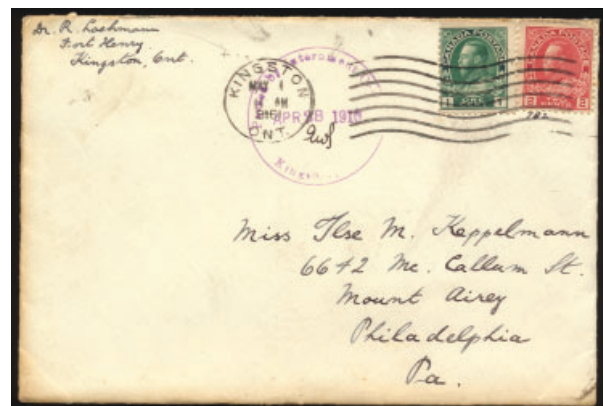 Dr. R. Lachmann
Fort Henry.
Kingston, Ont.
KINGSTON
ONT.
APR 28 1916
CANADA POSTAGE
CANADA POSTAGE
2 2
Miss Ilse M. Keppelmann
6642 Mc. Callum St.
Mount Airey
Philadelphia
Pa.